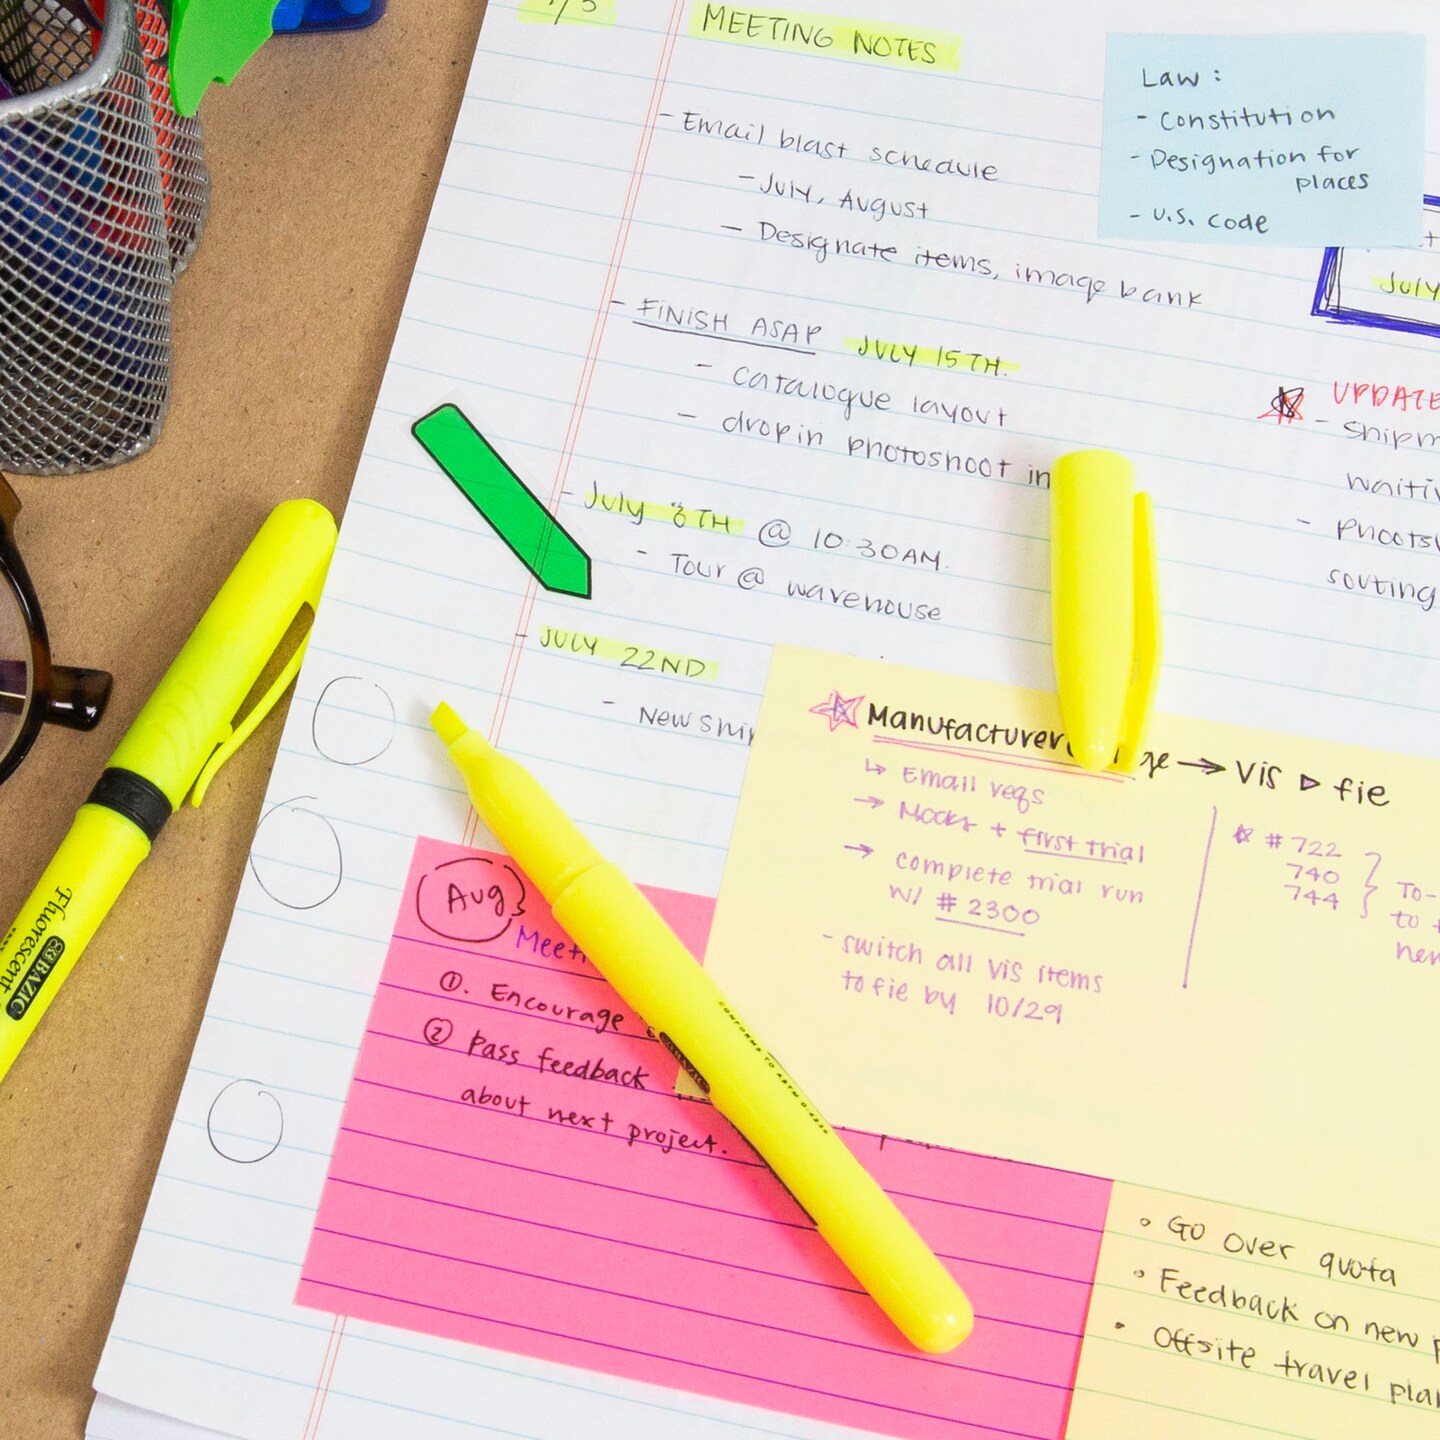 MEETING NOTES
- Email blast schedule
- July, August
- Designate items, image bank
- FINISH ASAP JULY 15TH.
- catalogue layout
- drop in photoshoot in
- July 8TH @ 10:30AM.
- Tour @ warehouse
- JULY 22ND
- New
Law:
- Constitution
- Designation for
places
- U.S. Code
July
UPDATE
-
-
Manufacturer → Vis ▷ fie
↳ Email reqs
→ Mocks + first trial
→ complete trial run
w/ # 2300
- switch all vis items
to fie by 10/29
# 722
740
744
to
Aug
①. Encourage
② Pass feedback
about next project.
• Go over quota
• Feedback on new
• Offsite travel
Fluorescent
BAZIC
CONFORMS TO ASTM D-4236